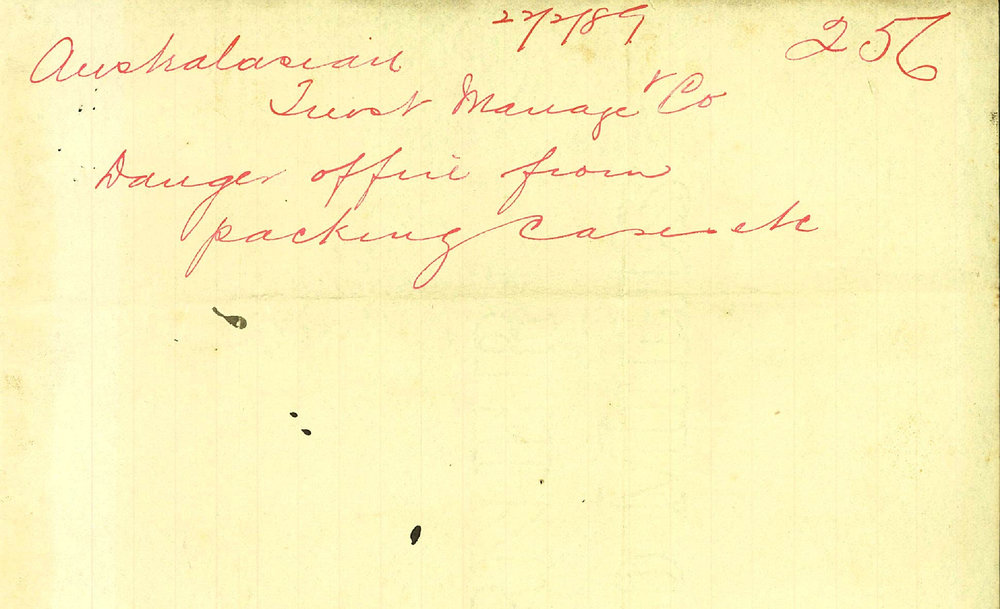 22/2/89
256
Australasian
Trust Manage't Co
Danger of fire from
packing cases etc